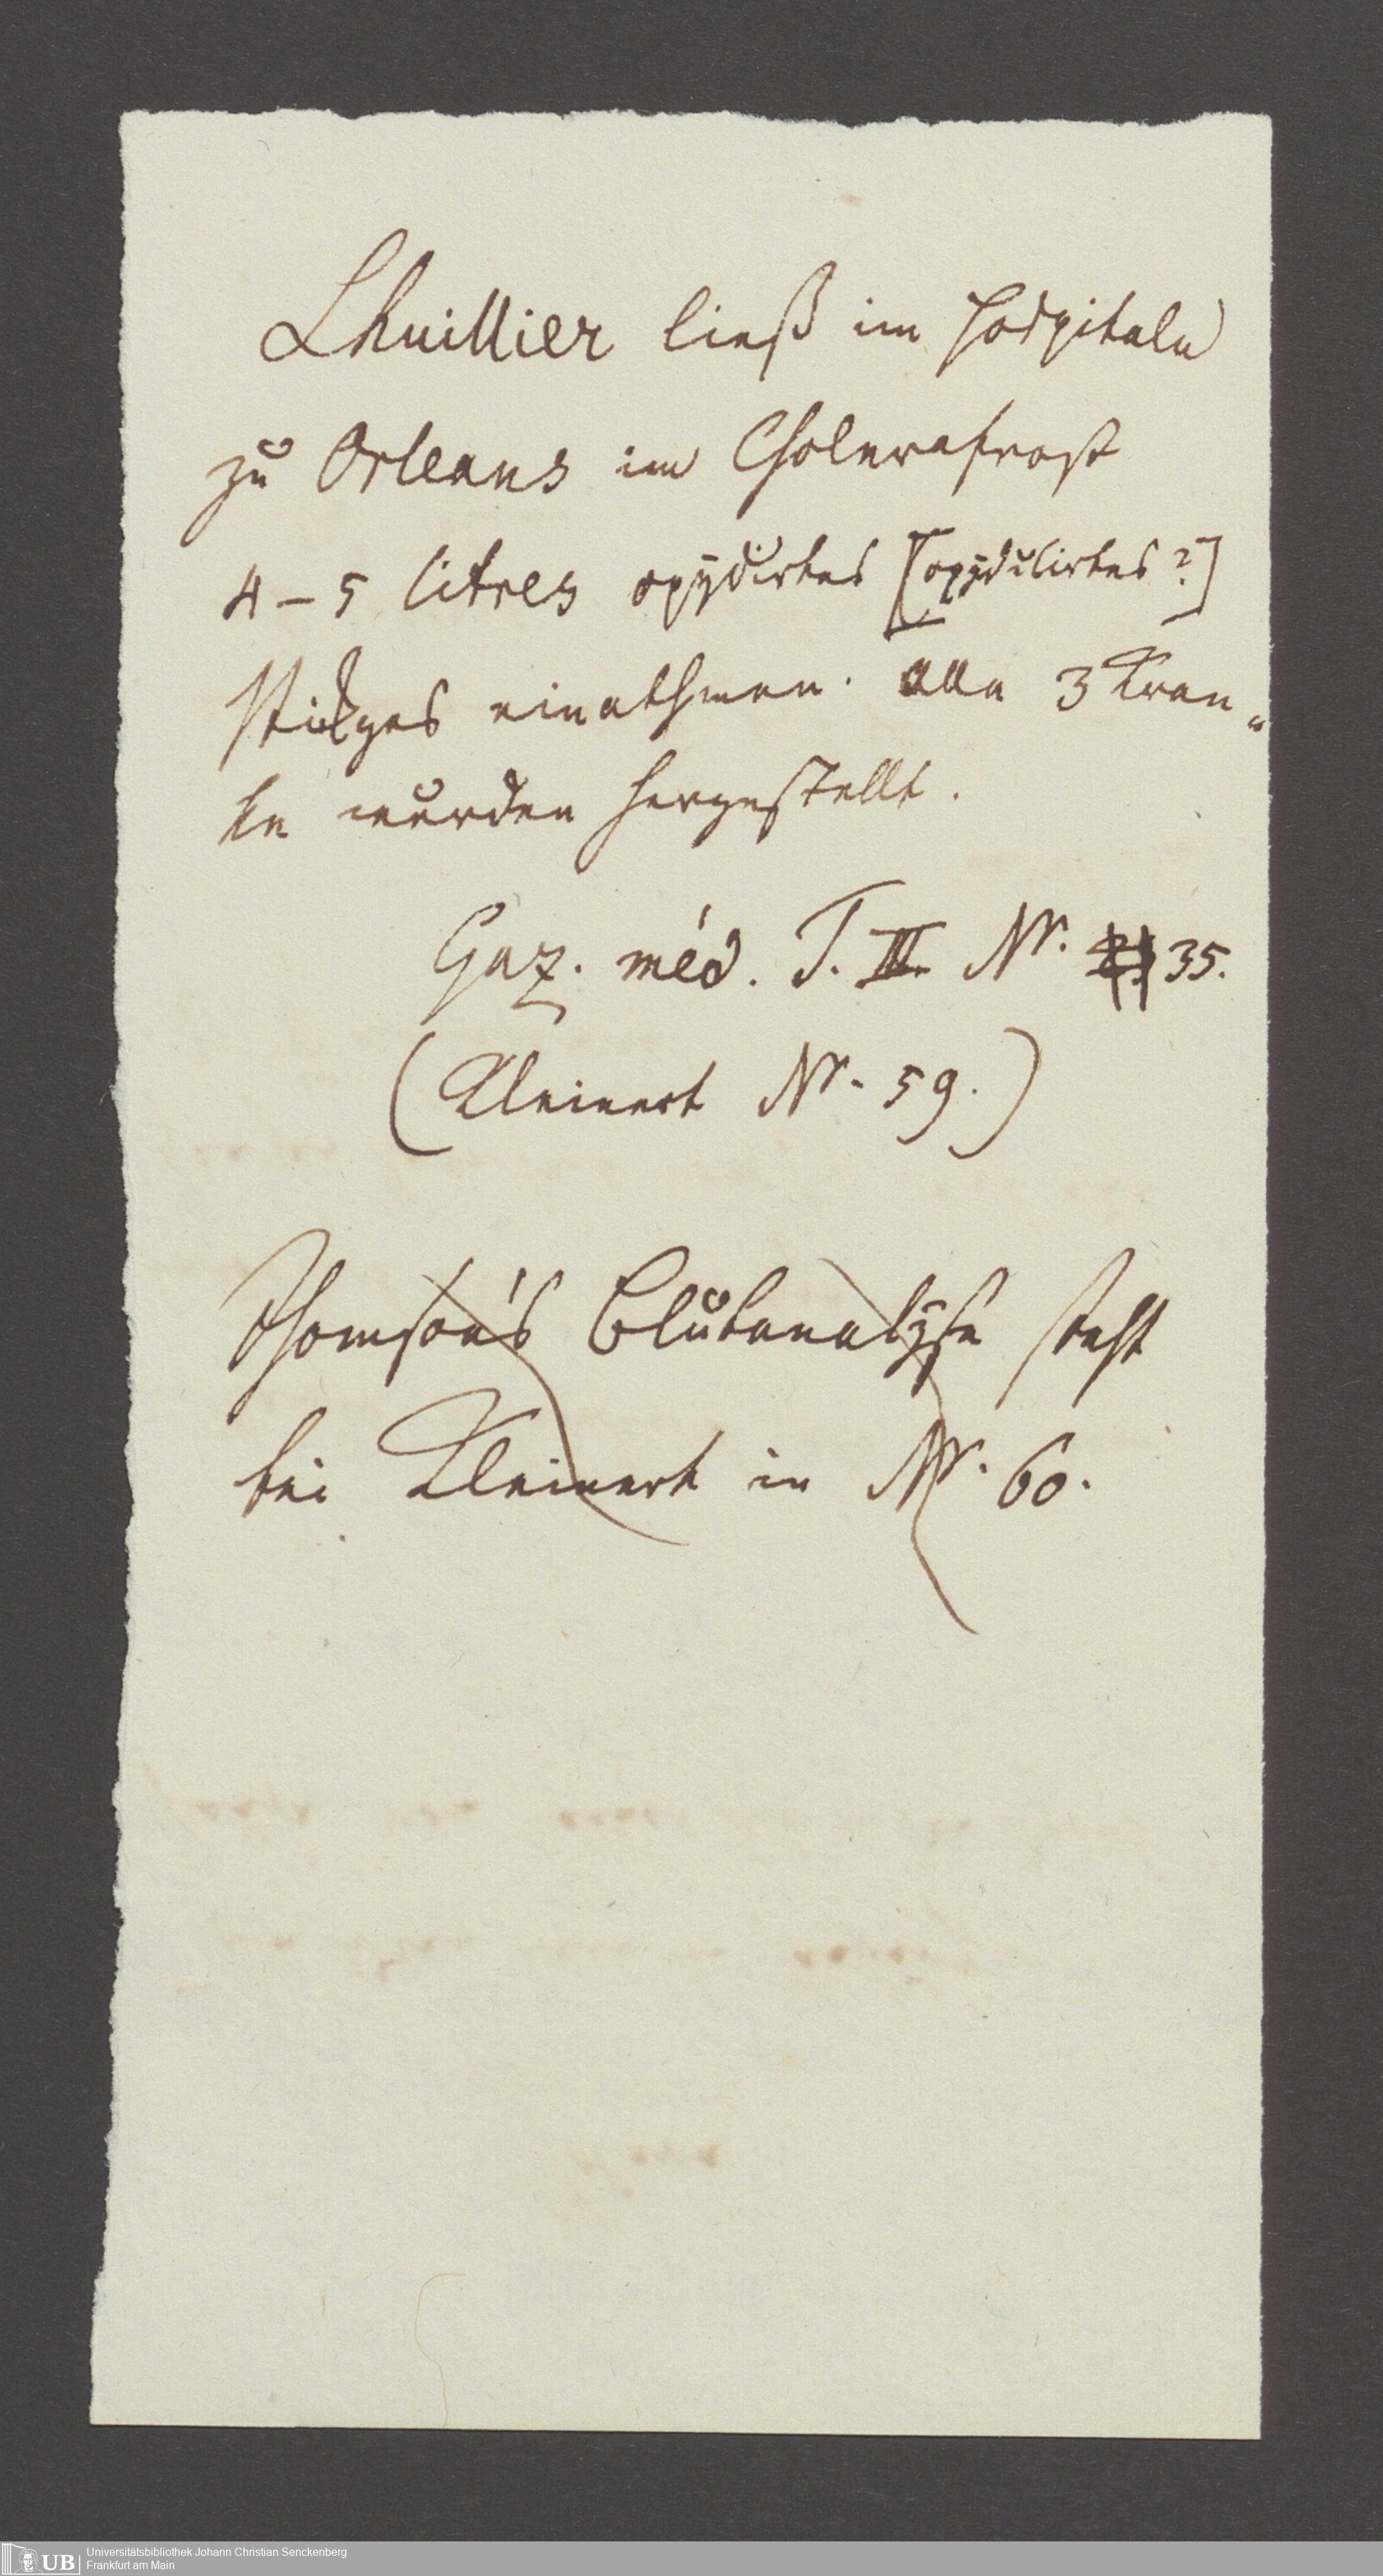 Lhuillier ließ im Hospitale
zu Orleans im Cholerafrost
4 – 5 litres oxydirtes [oxydulirtes?]
Stickgas einathmen. Alle 3 Kran„
ke wurden hergestellt.
Gaz. méd. T. III. Nr. 35.
(Kleinert Nr. 59.)
Thomson's Blutanalyse steht
bei Kleinert in Nr. 60.
UB Universitätsbibliothek Johann Christian Senckenberg
Frankfurt am Main